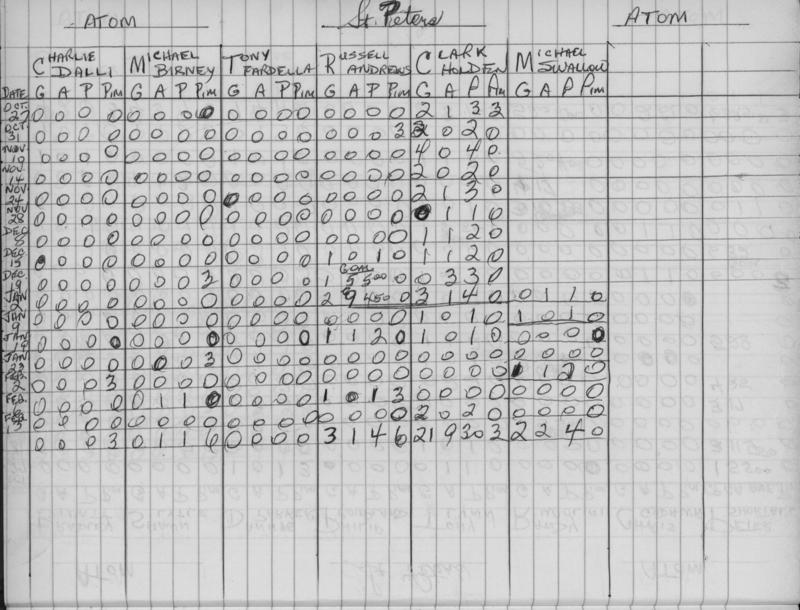 ATOM St. Peters ATOM
CHARLIE DALLI MICHAEL BIRNEY TONY FARDELLA RUSSELL ANDREWS CLARK HOLDEN MICHAEL SWALLOW
DATE G A P Pim G A P Pim G A P Pim G A P Pim G A P Pim G A P Pim
OCT. 27 0 0 0 0 0 0 0 0 0 0 0 0 0 0 0 0 2 1 3 2
OCT. 31 0 0 0 0 0 0 0 0 0 0 0 0 0 0 0 3 2 0 2 0
NOV. 0 0 0 0 0 0 0 0 0 0 0 0 0 0 0 0 4 0 4 0
NOV. 14 0 0 0 0 0 0 0 0 0 0 0 0 0 0 0 0 2 0 2 0
NOV. 24 0 0 0 0 0 0 0 0 0 0 0 0 0 0 0 0 2 1 3 0
NOV 28 0 0 0 0 0 0 0 0 0 0 0 0 0 0 0 0 0 1 1 0
DEC 8 0 0 0 0 0 0 0 0 0 0 0 0 0 0 0 0 1 1 2 0
DEC 15 0 0 0 0 0 0 0 0 0 0 0 0 1 0 1 0 1 1 2 0
DEC 19 0 0 0 0 0 0 0 3 0 0 0 0 1 GOAL 0 0 3 3 0
JAN 2 0 0 0 0 0 0 0 0 0 0 0 0 2 9 450 0 3 1 4 0 0 1 1 0
JAN 9 0 0 0 0 0 0 0 0 0 0 0 0 0 0 0 0 1 0 1 0 1 0 1 0
JAN 0 0 0 0 0 0 0 0 0 0 0 0 1 1 2 0 1 0 1 0 0 0 0 0
JAN 23 0 0 0 0 0 0 0 3 0 0 0 0 0 0 0 0 0 0 0 0 0 0 0 0
FEB. 2 0 0 0 3 0 0 0 0 0 0 0 0 0 0 0 0 0 0 0 0 1 1 2 0
FEB. 0 0 0 0 0 1 1 0 0 0 0 0 1 0 1 3 0 0 0 0 0 0 0 0
FEB. 13 0 0 0 0 0 0 0 0 0 0 0 0 0 0 0 0 2 0 2 0 0 0 0 0
0 0 0 3 0 1 1 6 0 0 0 0 3 1 4 6 21 9 30 3 2 2 4 0